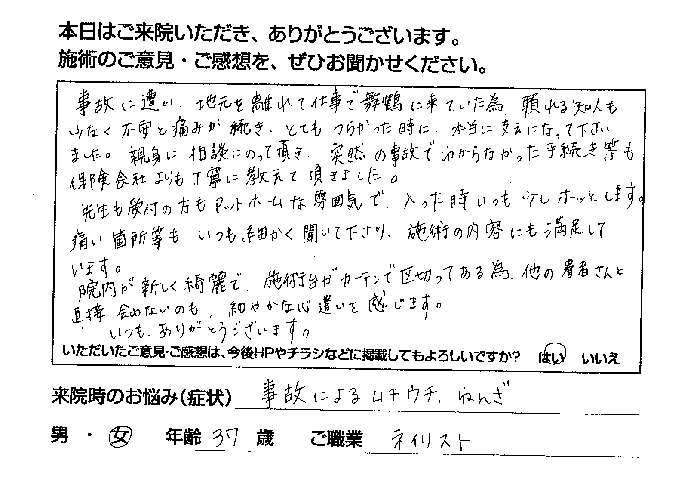 本日はご来院いただき、ありがとうございます。
施術のご意見・ご感想を、ぜひお聞かせください。
事故に遭い、地元を離れて仕事で舞鶴に来ていた為、頼れる知人も
少なく不安と痛みが続き、とてもつらかった時に、本当に支えになって下さい
ました。親身に相談にのって頂き、突然の事故で分からなかった手続き等も
保険会社よりも丁寧に教えて頂きました。
先生も受付の方もアットホームな雰囲気で、入った時いつも少しホッとします。
痛い箇所等も いつも細かく聞いて下さり、施術の内容にも満足して
います。
院内が新しく綺麗で、施術台がカーテンで区切ってある為、他の患者さんと
直接会わないのも、細やかな心遣いを感じます。
いつもありがとうございます。
いただいたご意見・ご感想は、今後HPやチラシなどに掲載してもよろしいですか? はい いいえ
来院時のお悩み(症状) 事故によるムチウチ、ねんざ
男 ・ 女 年齢 37 歳 ご職業 ネイリスト